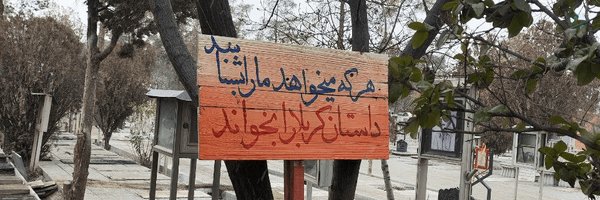 هرکه میخواهد ما را بشناسد
داستان کربلا را بخواند